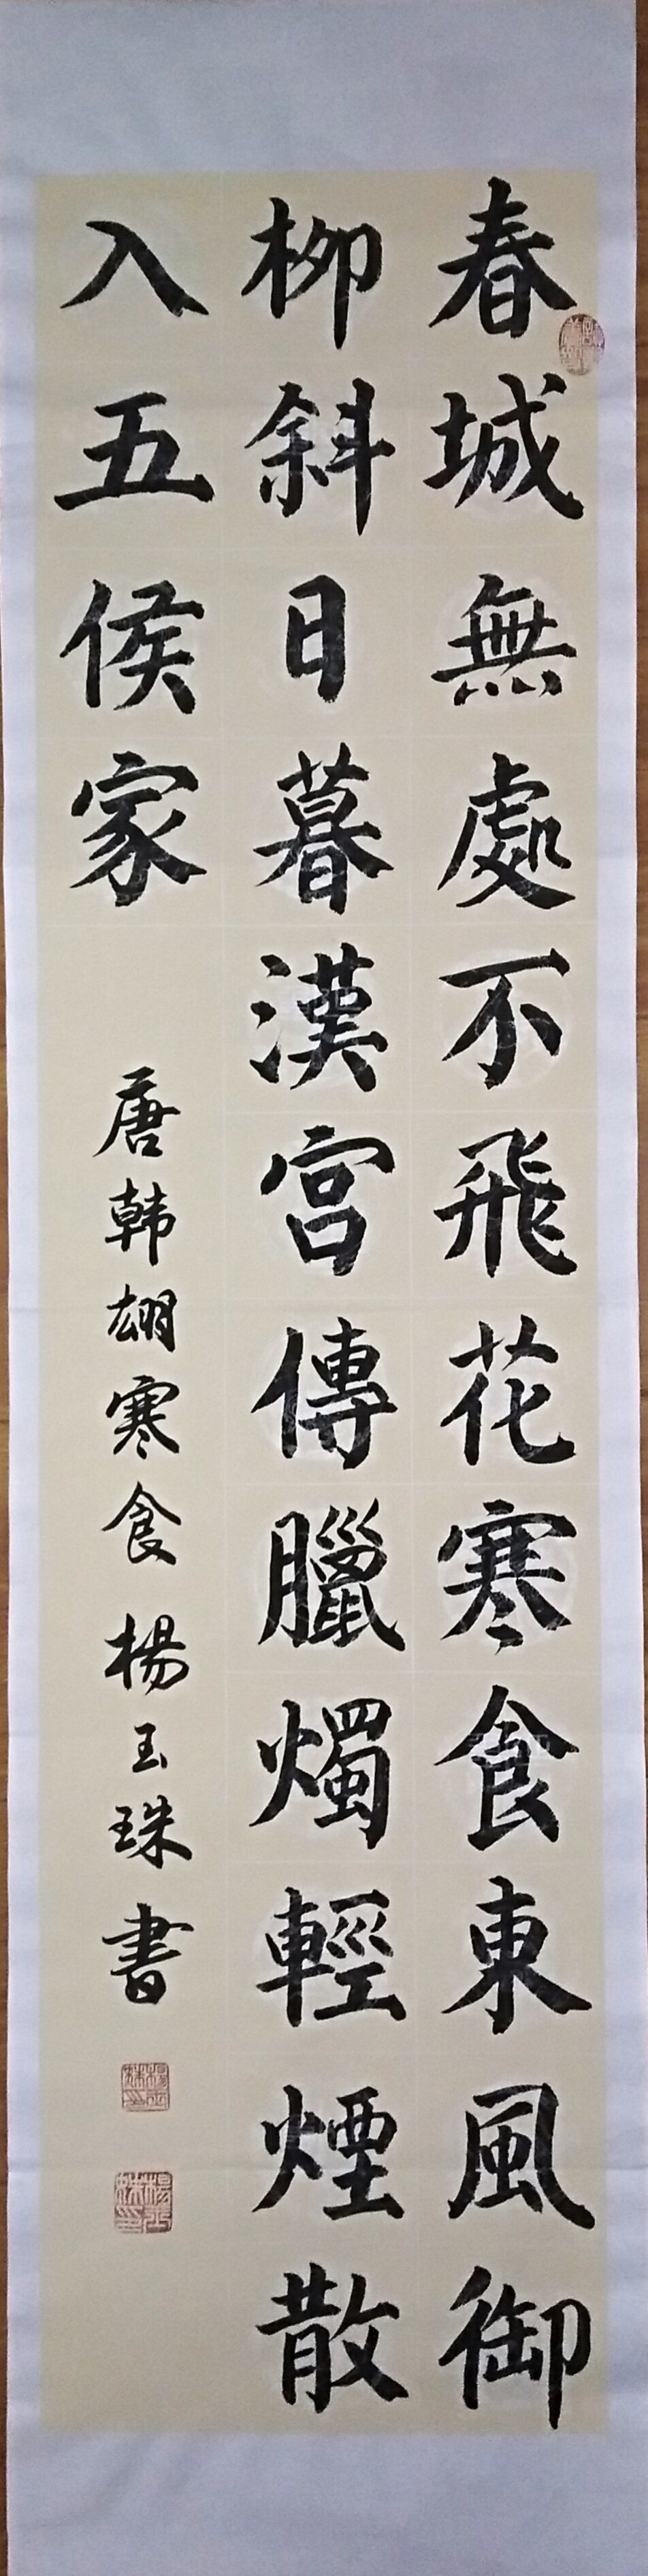 春城無處不飛花寒食東風御
柳斜日暮漢宮傳臘燭輕煙散
入五侯家
唐韩翃寒食 楊玉珠書